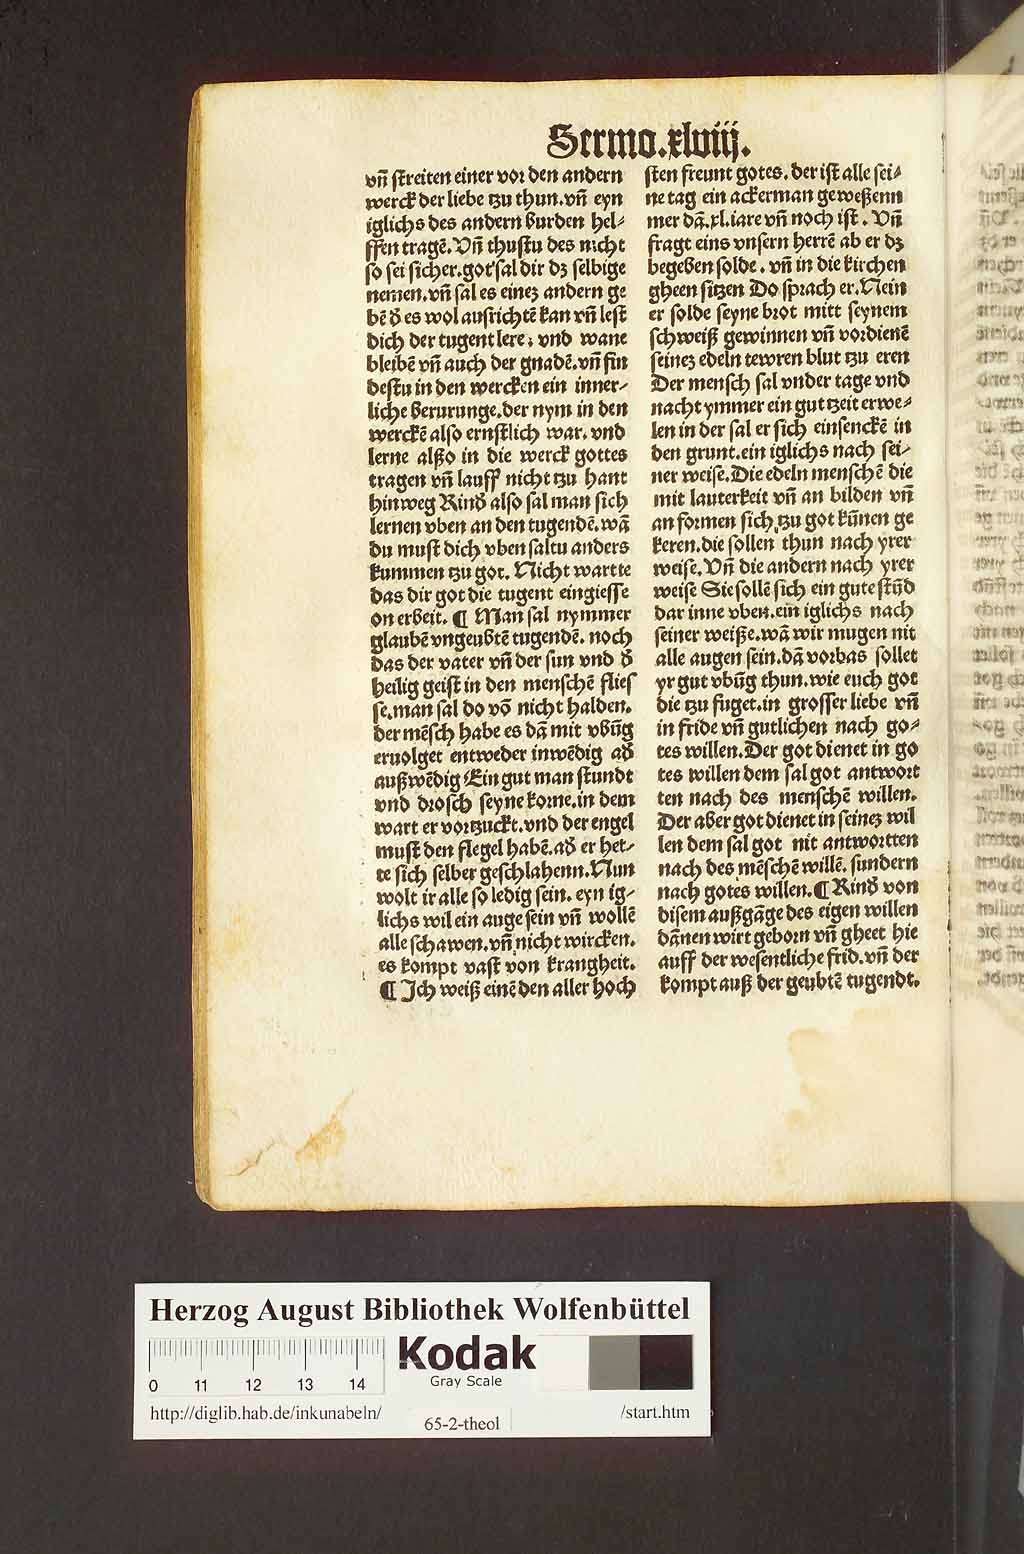 Sermo.xlviij.
vñ streiten einer vor den andern
werck der liebe tzu thun.vñ eyn
iglichs des andern burden hel⸗
ffen tragē.Vñ thustu des nicht
so sei sicher.got sal dir dz selbige
nemen.vñ sal es einez andern ge
bē d̕ es wol ausrichtē kan vñ lest
dich der tugent lere, vnd wane
bleibē vñ auch der gnadē.vñ fin
destu in den wercken ein inner⸗
liche berurunge.der nym in den
werckē also ernstlich war.vnd
lerne alßo in die werck gottes
tragen vñ lauff nicht tzu hant
hinweg Rind̕ also sal man sich
lernen vben an den tugendē.wā
du must dich vben saltu anders
kummen tzu got. Nicht wartte
das dir got die tugent eingiesse
on erbeit. ¶ Man sal nymmer
glaubē vngeubtē tugendē. noch
das der vater vñ der sun vnd d̕
heilig geist in den menschē flies
se.man sal do vō nicht halden.
der mēsch habe es dā mit vbūg
eruolget entweder inwēdig ad̕
außwēdig Ein gut man stundt
vnd drosch seyne korne.in dem
wart er vortzuckt.vnd der engel
must den flegel habē.ad̕ er het⸗
te sich selber geschlahenn.Nun
wolt ir alle so ledig sein. eyn ig⸗
lichs wil ein auge sein vñ wollē
alle schawen.vñ nicht wircken.
es kompt vast von krangheit.
¶ Ich weiß einē den aller hoch
sten freunt gotes. der ist alle sei⸗
ne tag ein ackerman geweßenn
mer dā.xl.iare vñ noch ist . Vñ
fragt eins vnsern herrē ab er dz
begeben solde. vñ in die kirchen
gheen sitzen Do sprach er.Nein
er solde seyne brot mitt seynem
schweiß gewinnen vñ vordienē
seinez edeln tewren blut tzu eren
Der mensch sal vnder tage vnd
nacht ymmer ein gut tzeit erwe⸗
len in der sal er sich einsenckē in
den grunt.ein iglichs nach sei⸗
ner weise.Die edeln menschē die
mit lauterkeit vñ an bilden vñ
an formen sich tzu got kūnen ge
keren.die sollen thun nach yrer
weise.Vñ die andern nach yrer
weise Sie sollē sich ein gute stūd
dar inne vben.ein iglichs nach
seiner weiße.wā wir mugen nit
alle augen sein.dā vorbas sollet
yr gut vbūg thun.wie euch got
die tzu fuget.in grosser liebe vñ
in fride vñ gutlichen nach go⸗
tes willen.Der got dienet in go
tes willen dem sal got antwort
ten nach des menschē willen.
Der aber got dienet in seinez wil
len dem sal got nit antwortten
nach des mēschē willē. sundern
nach gotes willen.¶ Rind̕ von
disem außgāge des eigen willen
dānen wirt geborn vñ gheet hie
auff der wesentliche frid.vñ der
kompt auß der geubtē tugendt.
Herzog August Bibliothek Wolfenbüttel
Kodak
Gray Scale
0 11 12 13 14
http://diglib.hab.de/inkunabeln/
65-2-theol
/start.htm